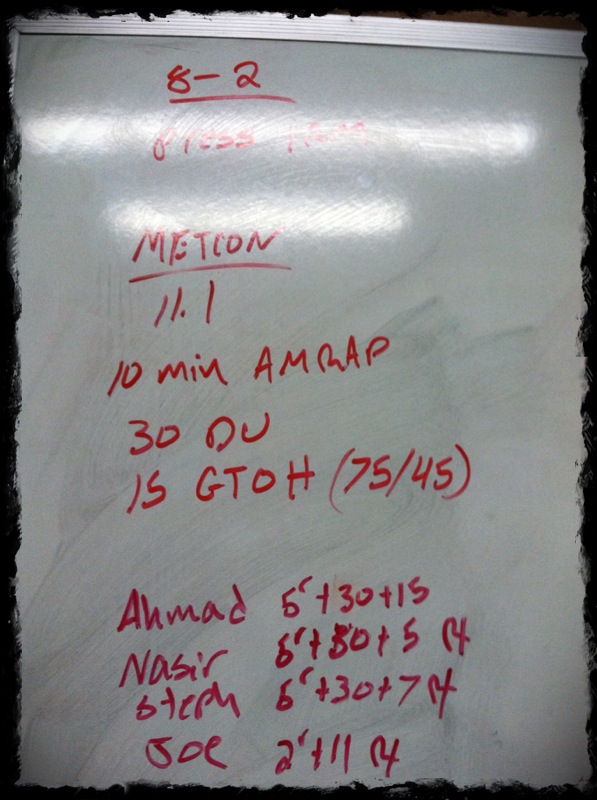 8-2
Press
METCON
11.1
10 min AMRAP
30 DU
15 GTOH (75/45)
Ahmad 5r+30+15
Nasir 5r+30+5 R
Steph 5r+30+7 R
Joe 2r+11 R